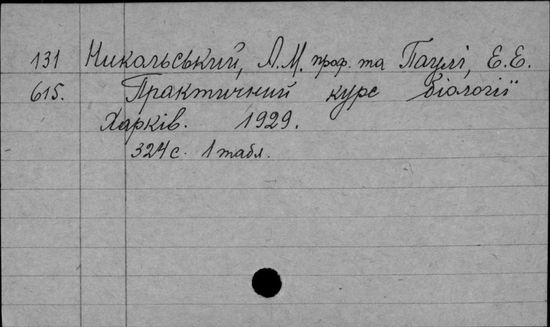 131 Никольський, А.М. проф. та Паулі, Е.Е.
615. Практичний курс біології
Харків. 1929.
324 с. 1 табл.